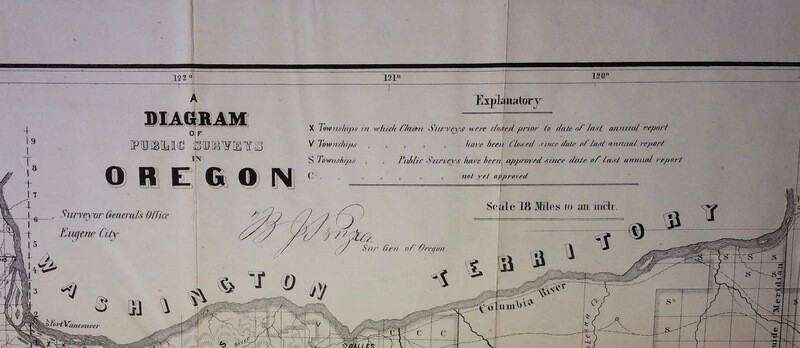 122°
121°
120°
A
DIAGRAM
OF
PUBLIC SURVEYS
IN
OREGON
Surveyor General's Office
Eugene City
Sur Gen of Oregon
Explanatory
X Townships in which Claim Surveys were closed prior to date of last annual report
V Townships . . . . have been Closed since date of last annual report
S Townships . . Public Surveys have been approved since date of last annual report
C . . . . . not yet approved
Scale 18 Miles to an inch.
WASHINGTON TERRITORY
Columbia River
Fort Vancouver
DALLES
River
9
8
7
6
5
4
3
2
V
C C C
S S S
S
S
S